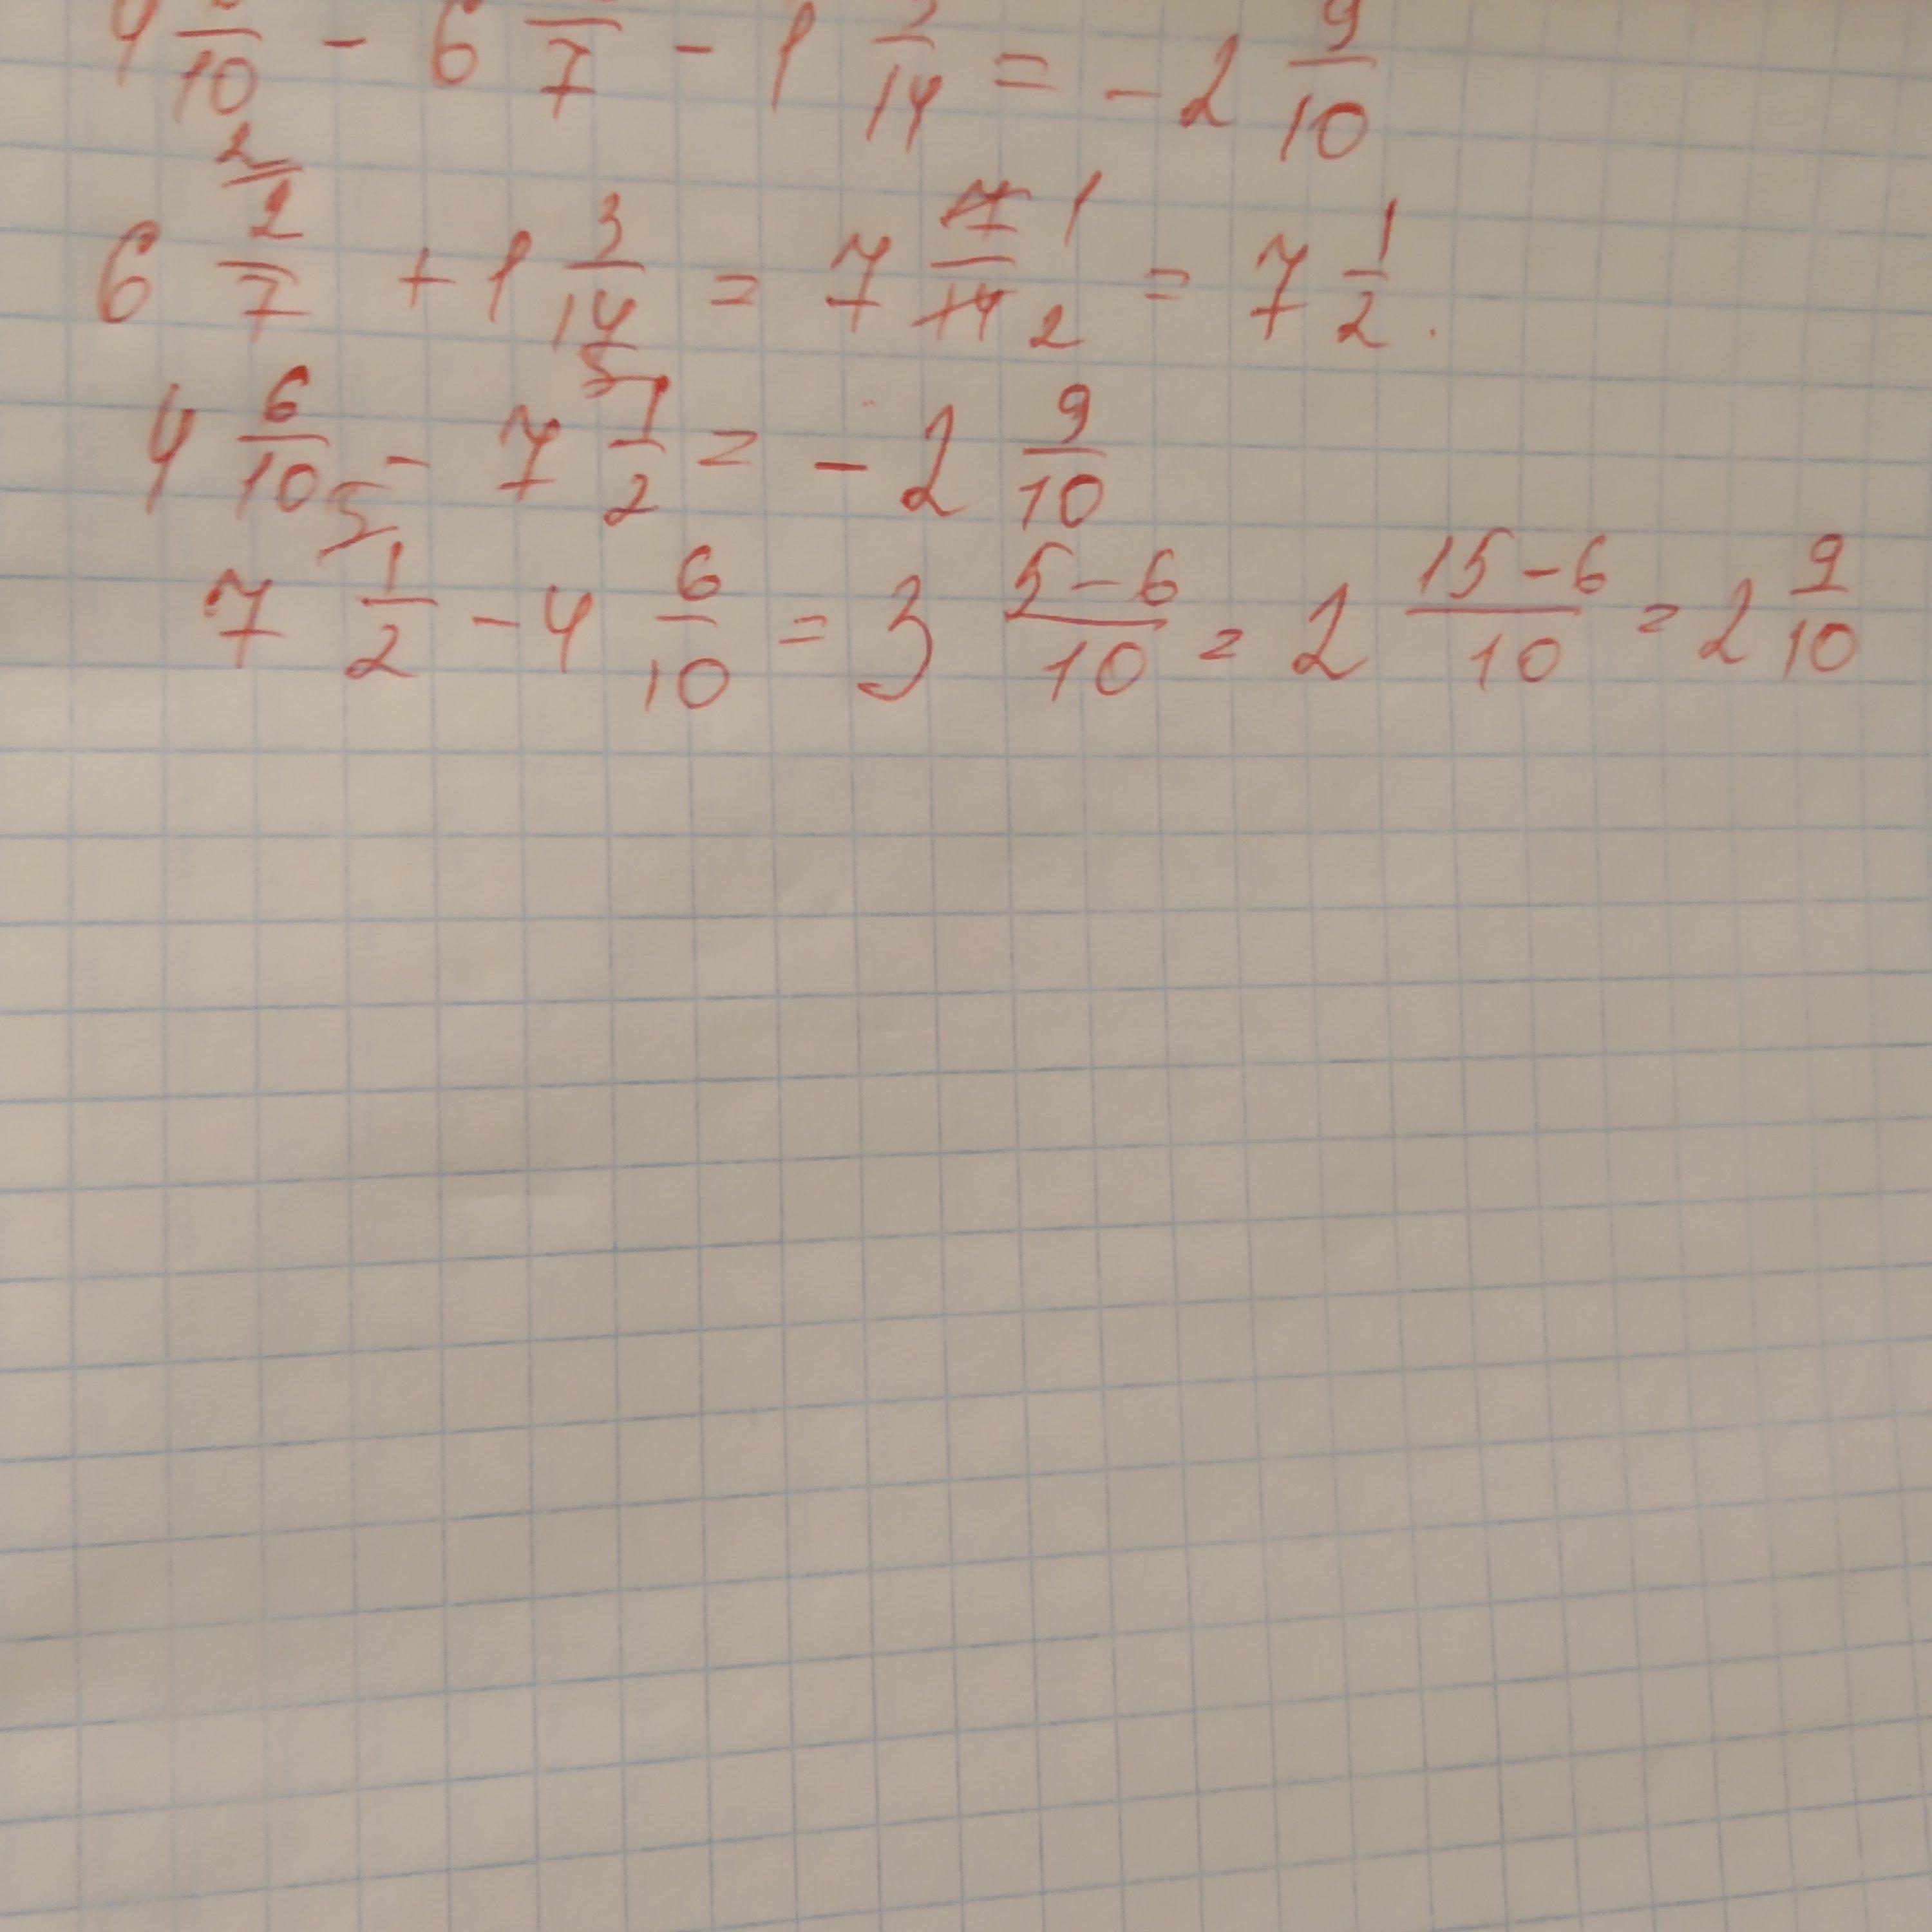 4 6/10 - 6 2/7 - 1 3/14 = -2 9/10
6 2/7 + 1 3/14 = 7 7/14 1 2 = 7 1/2.
4 6/10 - 7 1/2 = -2 9/10
7 1/2 - 4 6/10 = 3 5-6/10 = 2 15-6/10 = 2 9/10